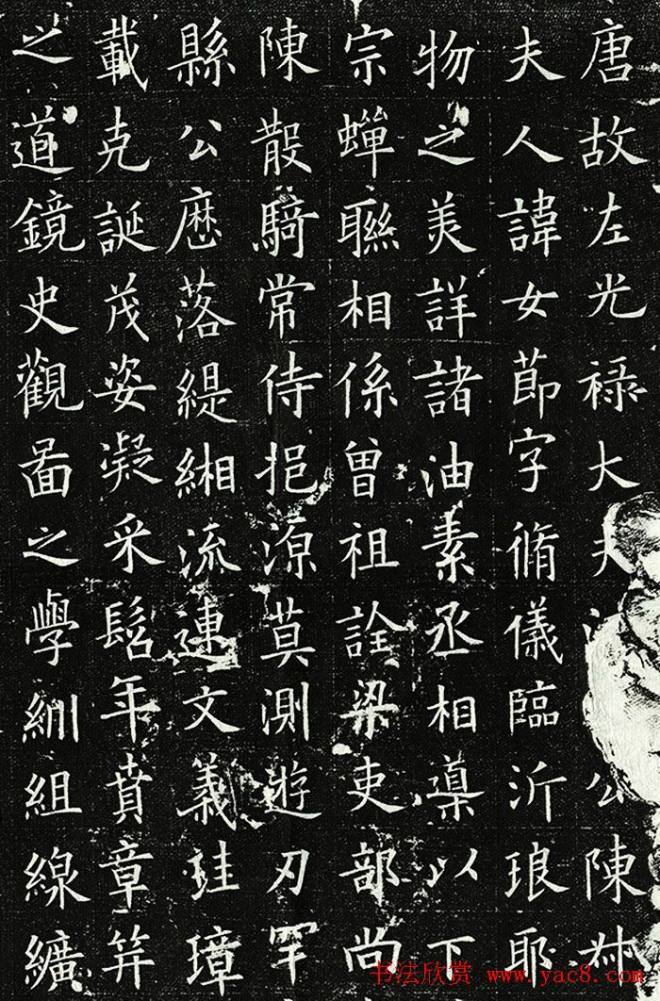 唐故左光禄大夫公陳叔
夫人諱女節字脩儀臨沂琅耶
物之美詳諸油素丞相導以下
宗蟬聯相係曾祖詮梁吏部尚
陳散騎常侍挹源莫測遊刃罕
縣公歷落緹緗流連文義珪璋
載克誕茂姿凝采髫年賁章笄
之道鏡史觀圖之學紃組線纊
书法欣赏 www.yac8.com